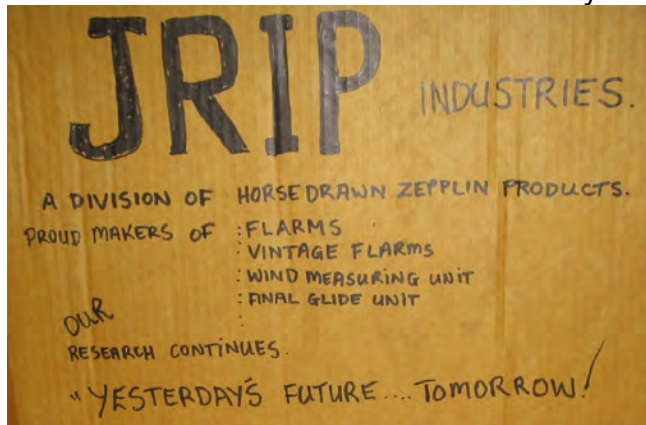 JRIP INDUSTRIES.
A DIVISION OF HORSEDRAWN ZEPPLIN PRODUCTS.
PROUD MAKERS OF : FLARMS
: VINTAGE FLARMS
: WIND MEASURING UNIT
: FINAL GLIDE UNIT
:
OUR
RESEARCH CONTINUES.
"YESTERDAY'S FUTURE .... TOMORROW!